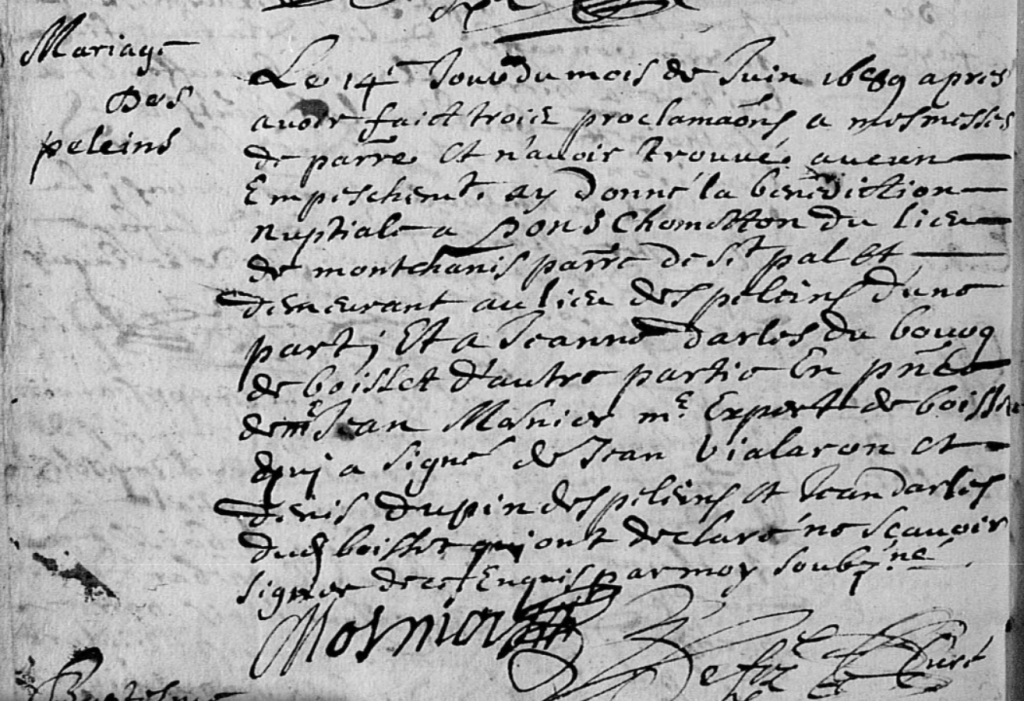 Mariage
Des
peleins
Le 14e Jour du mois de Juin 1689 apres
avoir faict trois proclamaõns a mes messes
de parre et n'avoir trouvé aucun
Empeschemt. ay donné la benediction
nuptiale a pons Chometton du lieu
de montchanis parre de St pal et
demeurant au lieu des peleins d'une
partj Et a Jeanne darles du bourg
de boisset d'autre partie En pñce
de me Jean Mosnier me Expert de boisset
quj a signé de Jean Vialaron et
denis dupin des peleins et Jean darles
dud boisset quj ont declaré ne scavoir
signer de ce Enquis par moy soubzné
Mosnier
Curé